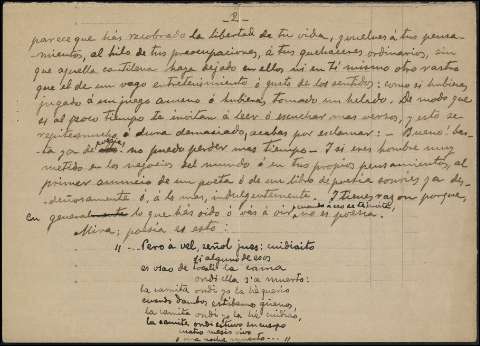 -2-
parece que has recobrado la libertad de tu vida, y vuelves á tus pensa-
mientos, al hilo de tus preocupaciones, á tus quehaceres ordinarios, sin
que aquella cantilena haya dejado en ellos ni en ti mismo otro rastro
que el de un vago entretenimiento ó gusto de los sentidos: como si hubieras
jugado á un juego ameno ó hubieras tomado un helado. De modo que
si al poco tiempo te invitan á leer ó escuchar mas versos, y esto se
repite mucho ó dura demasiado, acabas por exclamar: - Bueno! bas-
ta ya de no puedo perder mas tiempo - Y si eres hombre muy
metido en los negocios del mundo ó en tus propios pensamientos, al
primer anuncio de un poeta ó de un libro de poesia sonries ya des-
deñosamente ó, a lo mas, indulgentemente. Y tienes razon porque,
cuando á eso es
en general lo que has oido ó vas á oir, no es poesia.
Mira; poesia es esto:
"...Pero á vel, señol jues: cuidiaito
si alguno de esos
es osao de tocali la cama
ondi ella s'a muerto:
la camita ondi yo la he querio
cuando dambos estábamos güenos,
la camita ondi yo la he cuidiao,
la camita ondi estuvo su cuerpo
cuatro mesis vivo
y una nochi muerto..."